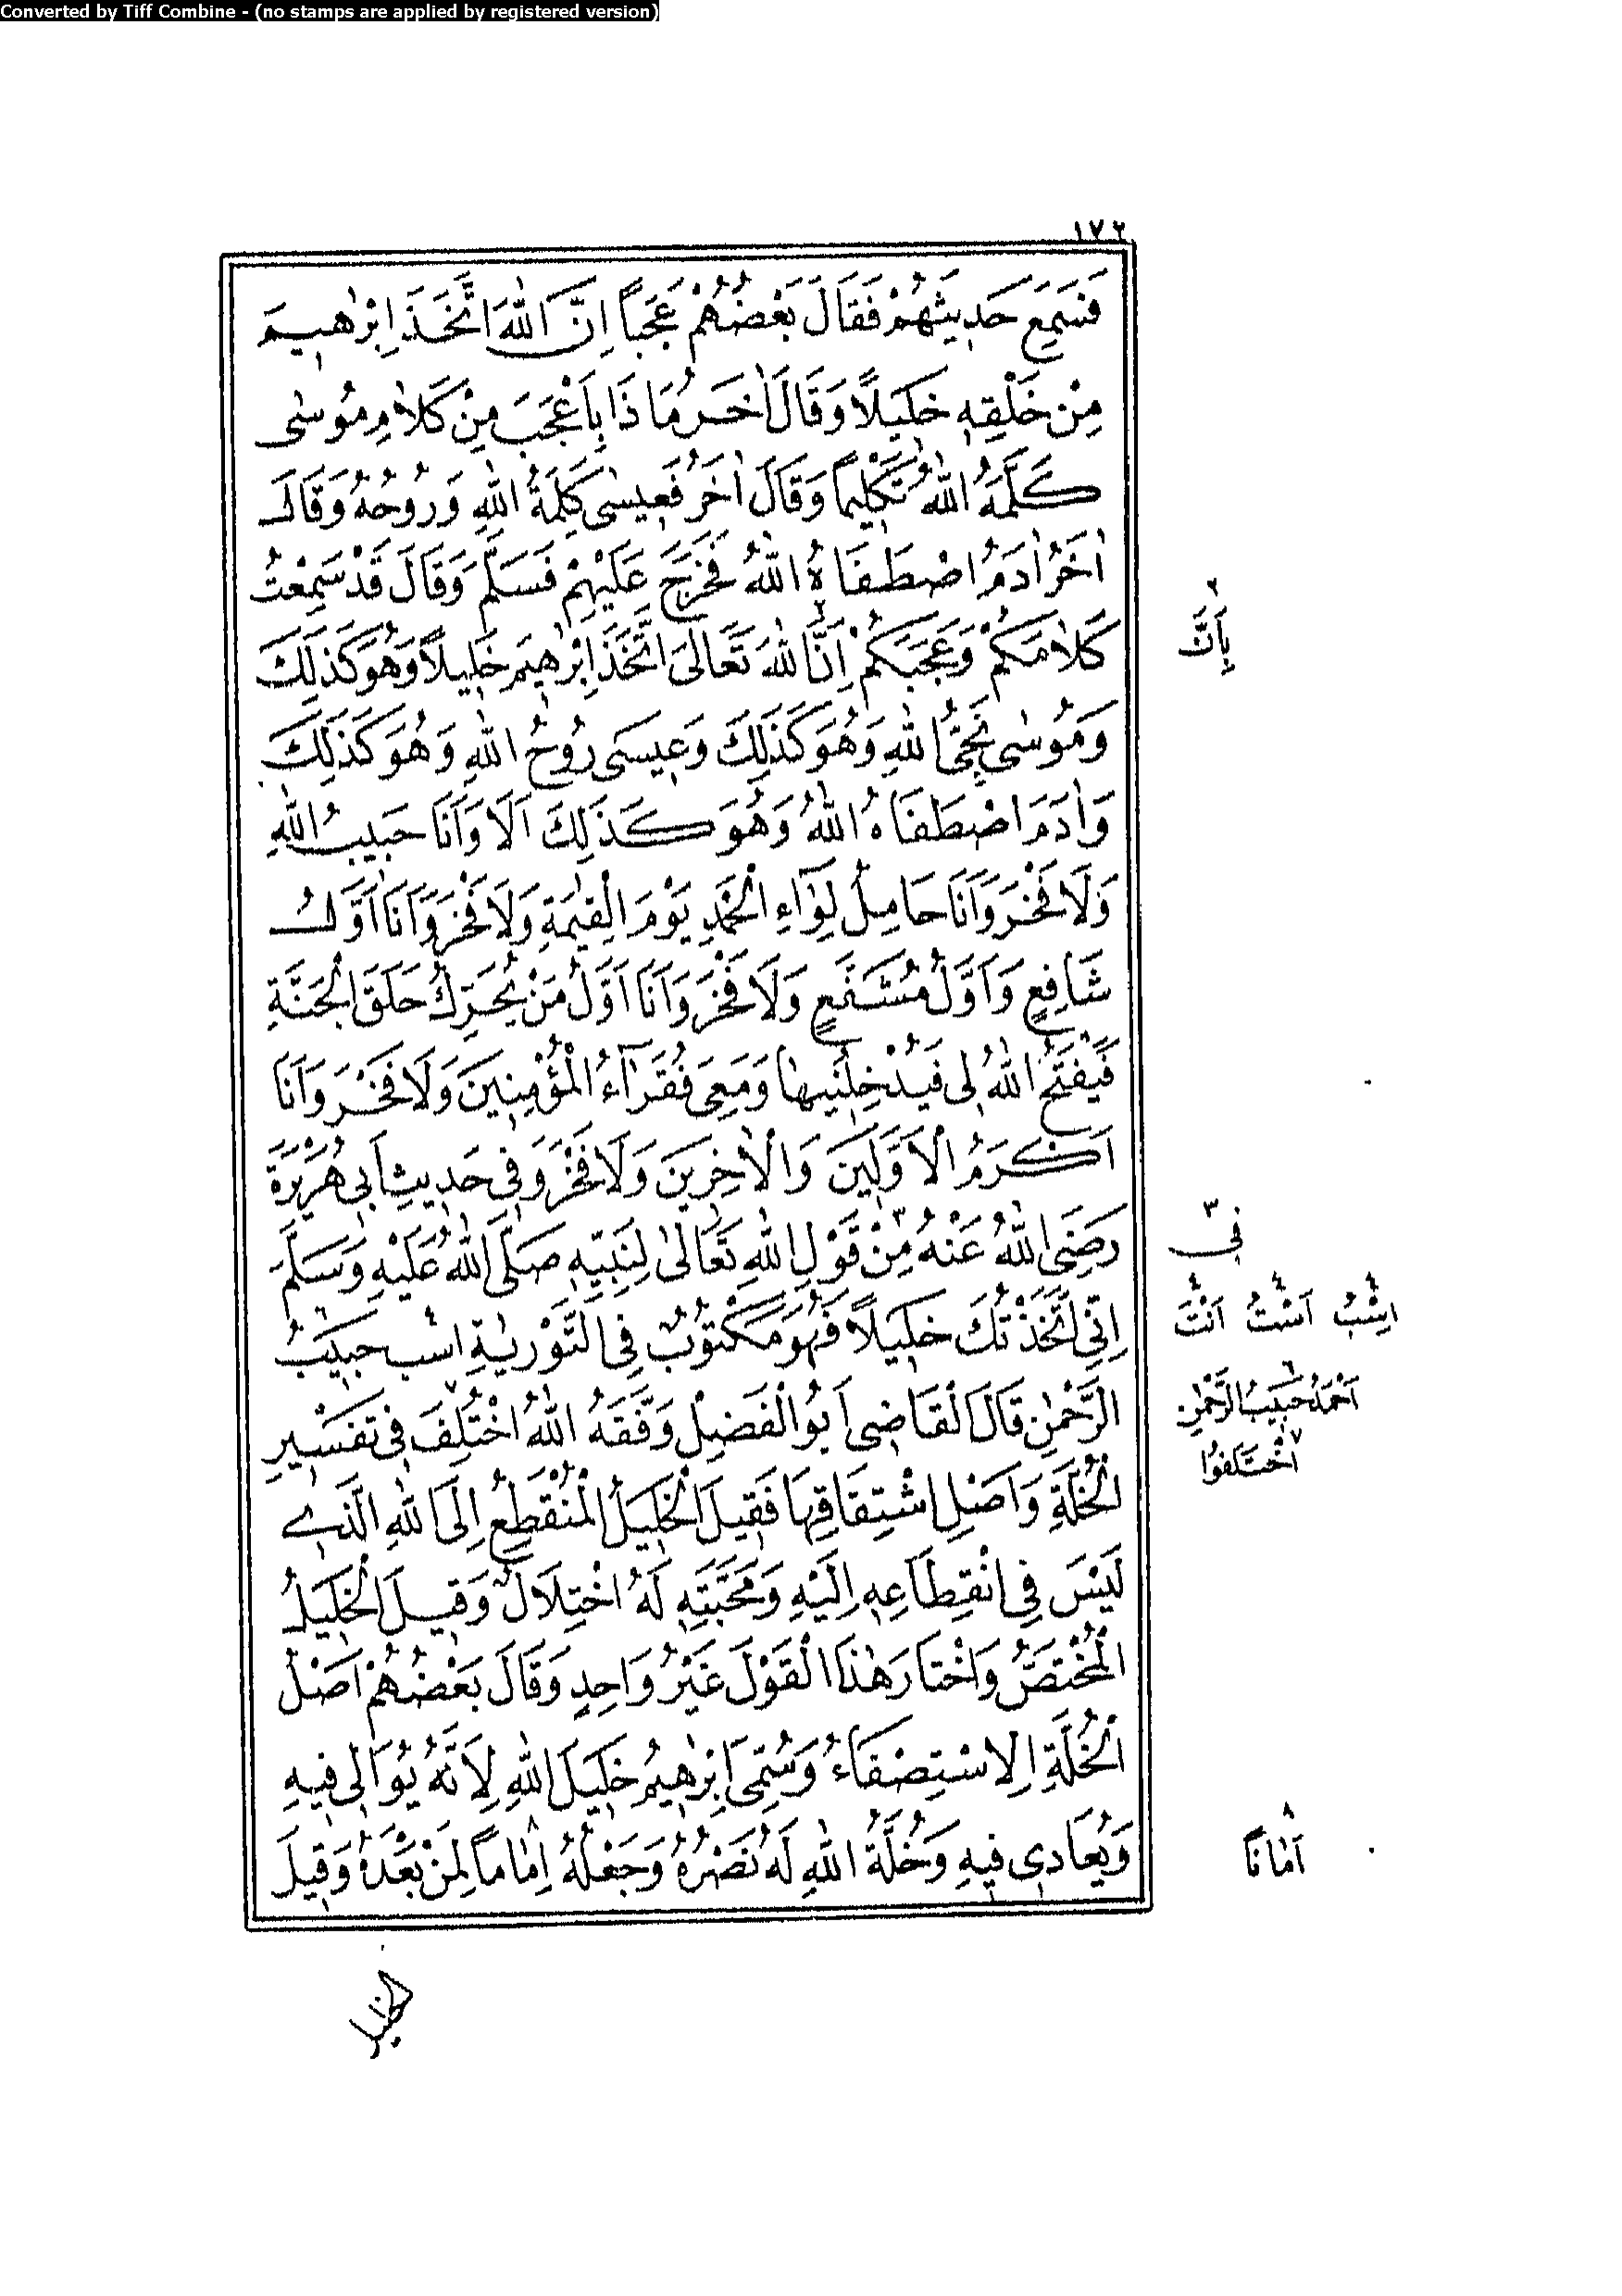 Converted by Tiff Combine - (no stamps are applied by registered version)
١٧٢
فَسَمِعَ حَدِيثَهُمْ فَقَالَ بَعْضُهُمْ عَجَبًا اِنَّ اللّٰهَ اتَّخَذَ اِبْرٰهِيمَ
مِنْ خَلْقِهِ خَلِيلًا وَقَالَ اٰخَرُ مَاذَا بِاَعْجَبَ مِنْ كَلَامِ مُوسٰى
كَلَّمَهُ اللّٰهُ تَكْلِيمًا وَقَالَ اٰخَرُ فَعِيسٰى كَلِمَةُ اللّٰهِ وَرُوحُهُ وَقَالَ
اٰخَرُ اٰدَمُ اصْطَفَاهُ اللّٰهُ فَخَرَجَ عَلَيْهِمْ فَسَلَّمَ وَقَالَ قَدْ سَمِعْتُ
كَلَامَكُمْ وَعَجَبَكُمْ اِنَّ٢ اللّٰهَ تَعَالَى اتَّخَذَ اِبْرٰهِيمَ خَلِيلًا وَهُوَ كَذٰلِكَ
وَمُوسٰى نَجِىُّ اللّٰهِ وَهُوَ كَذٰلِكَ وَعِيسَى رُوحُ اللّٰهِ وَهُوَ كَذٰلِكَ
وَاٰدَمَ اصْطَفَاهُ اللّٰهُ وَهُوَ كَذٰلِكَ اَلَا وَاَنَا حَبِيبُ اللّٰهِ
وَلَا فَخْرَ وَاَنَا حَامِلُ لِوَاءِ الْحَمْدِ يَوْمَ الْقِيٰمَةِ وَلَا فَخْرَ وَاَنَا اَوَّلُ
شَافِعٍ وَاَوَّلُ مُشَفَّعٍ وَلَا فَخْرَ وَاَنَا اَوَّلُ مَنْ يُحَرِّكُ حَلَقَ الْجَنَّةِ
فَيَفْتَحُ اللّٰهُ لِى فَيُدْخِلُنِيهَا وَمَعِىَ فُقَرَاءُ الْمُؤْمِنِينَ وَلَا فَخْرَ وَاَنَا
اَكْرَمُ الْاَوَّلِينَ وَالْاٰخِرِينَ وَلَا فَخْرَ وَفِى حَدِيثِ اَبِى هُرَيْرَةَ
رَضِىَ اللّٰهُ عَنْهُ مِنْ٣ قَوْلِ اللّٰهِ تَعَالٰى لِنَبِيِّهِ صَلَّى اللّٰهُ عَلَيْهِ وَسَلَّمَ
اِنِّى اتَّخَذْتُكَ خَلِيلًا فَهُوَ مَكْتُوبٌ فِى التَّوْرٰيةِ اسب٤ حَبِيبُ٦
الرَّحْمٰنِ قَالَ الْقَاضِى اَبُو الْفَضْلِ وَفَّقَهُ اللّٰهُ اخْتُلِفَ٧ فِى تَفْسِيرِ
الْخُلَّةِ وَاَصْلِ اشْتِقَاقِهَا فَقِيلَ الْخَلِيلُ الْمُنْقَطِعُ اِلَى اللّٰهِ الَّذِى
لَيْسَ فِى انْقِطَاعِهِ اِلَيْهِ وَمَحَبَّتِهِ لَهُ اخْتِلَالٌ وَقِيلَ الْخَلِيلُ
الْمُخْتَصُّ وَاخْتَارَ هٰذَا الْقَوْلَ غَيْرُ وَاحِدٍ وَقَالَ بَعْضُهُمْ اَصْلُ
الْخُلَّةِ الِاسْتِصْفَاءُ وَسُمِّىَ اِبْرٰهِيمُ خَلِيلَ اللّٰهِ لِاَنَّهُ يُوَالِى فِيهِ
وَيُعَادِى فِيهِ وَخُلَّةُ اللّٰهِ لَهُ نَصْرُهُ وَجَعْلُهُ اِمَامًا٨ لِمَنْ بَعْدَهُ وَقِيلَ
٢
بِاَنَّ
٣
فِى
٤ ٤ ٤
اَنْتَ
٦
اَحْمَدُ حَبِيبُ الرَّحْمٰنِ
٧
اخْتَلَفُوا
٨
اَمَانًا
الخليل